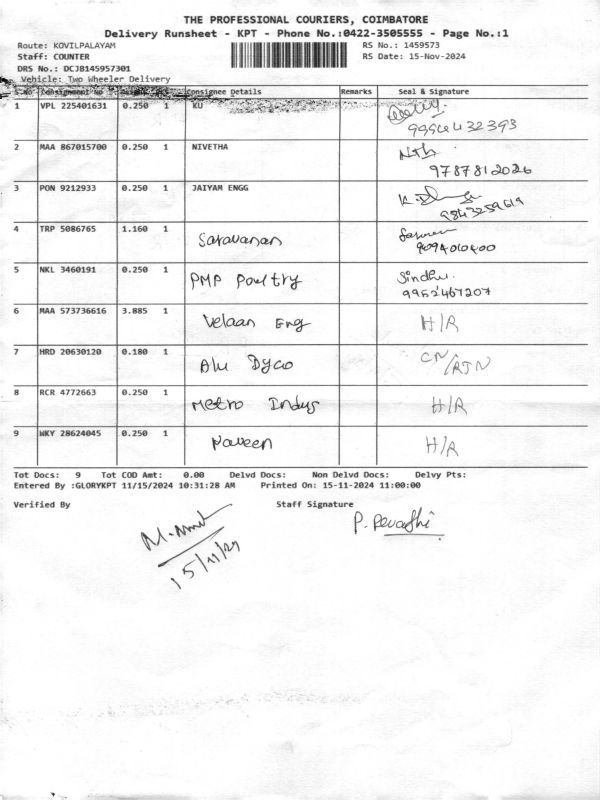 THE PROFESSIONAL COURIERS, COIMBATORE
Delivery Runsheet - KPT - Phone No.:0422-3505555 - Page No.:1
Route: KOVILPALAYAM RS No.: 1459573
Staff: COUNTER RS Date: 15-Nov-2024
DRS No.: DCJB145957301
Vehicle: Two Wheeler Delivery
S.No Consignment No Consignee Details Remarks Seal & Signature
1 VPL 225401631 0.250 1 KU
9994432393
2 MAA 867015700 0.250 1 NIVETHA Nith
9787812026
3 PON 9212933 0.250 1 JAIYAM ENGG
9843259619
4 TRP 5086765 1.160 1 Saravanan
9094010400
5 NKL 3460191 0.250 1 PMP Poultry Sindhu.
9952467207
6 MAA 573736616 3.885 1 Velaan Eng H/R
7 HRD 20630120 0.180 1 Alu Dyco CN/RTN
8 RCR 4772663 0.250 1 Metro Indus H/R
9 WKY 28624045 0.250 1 Naveen H/R
Tot Docs: 9 Tot COD Amt: 0.00 Delvd Docs: Non Delvd Docs: Delvy Pts:
Entered By :GLORYKPT 11/15/2024 10:31:28 AM Printed On: 15-11-2024 11:00:00
Verified By Staff Signature
P. Revathi
15/11/24